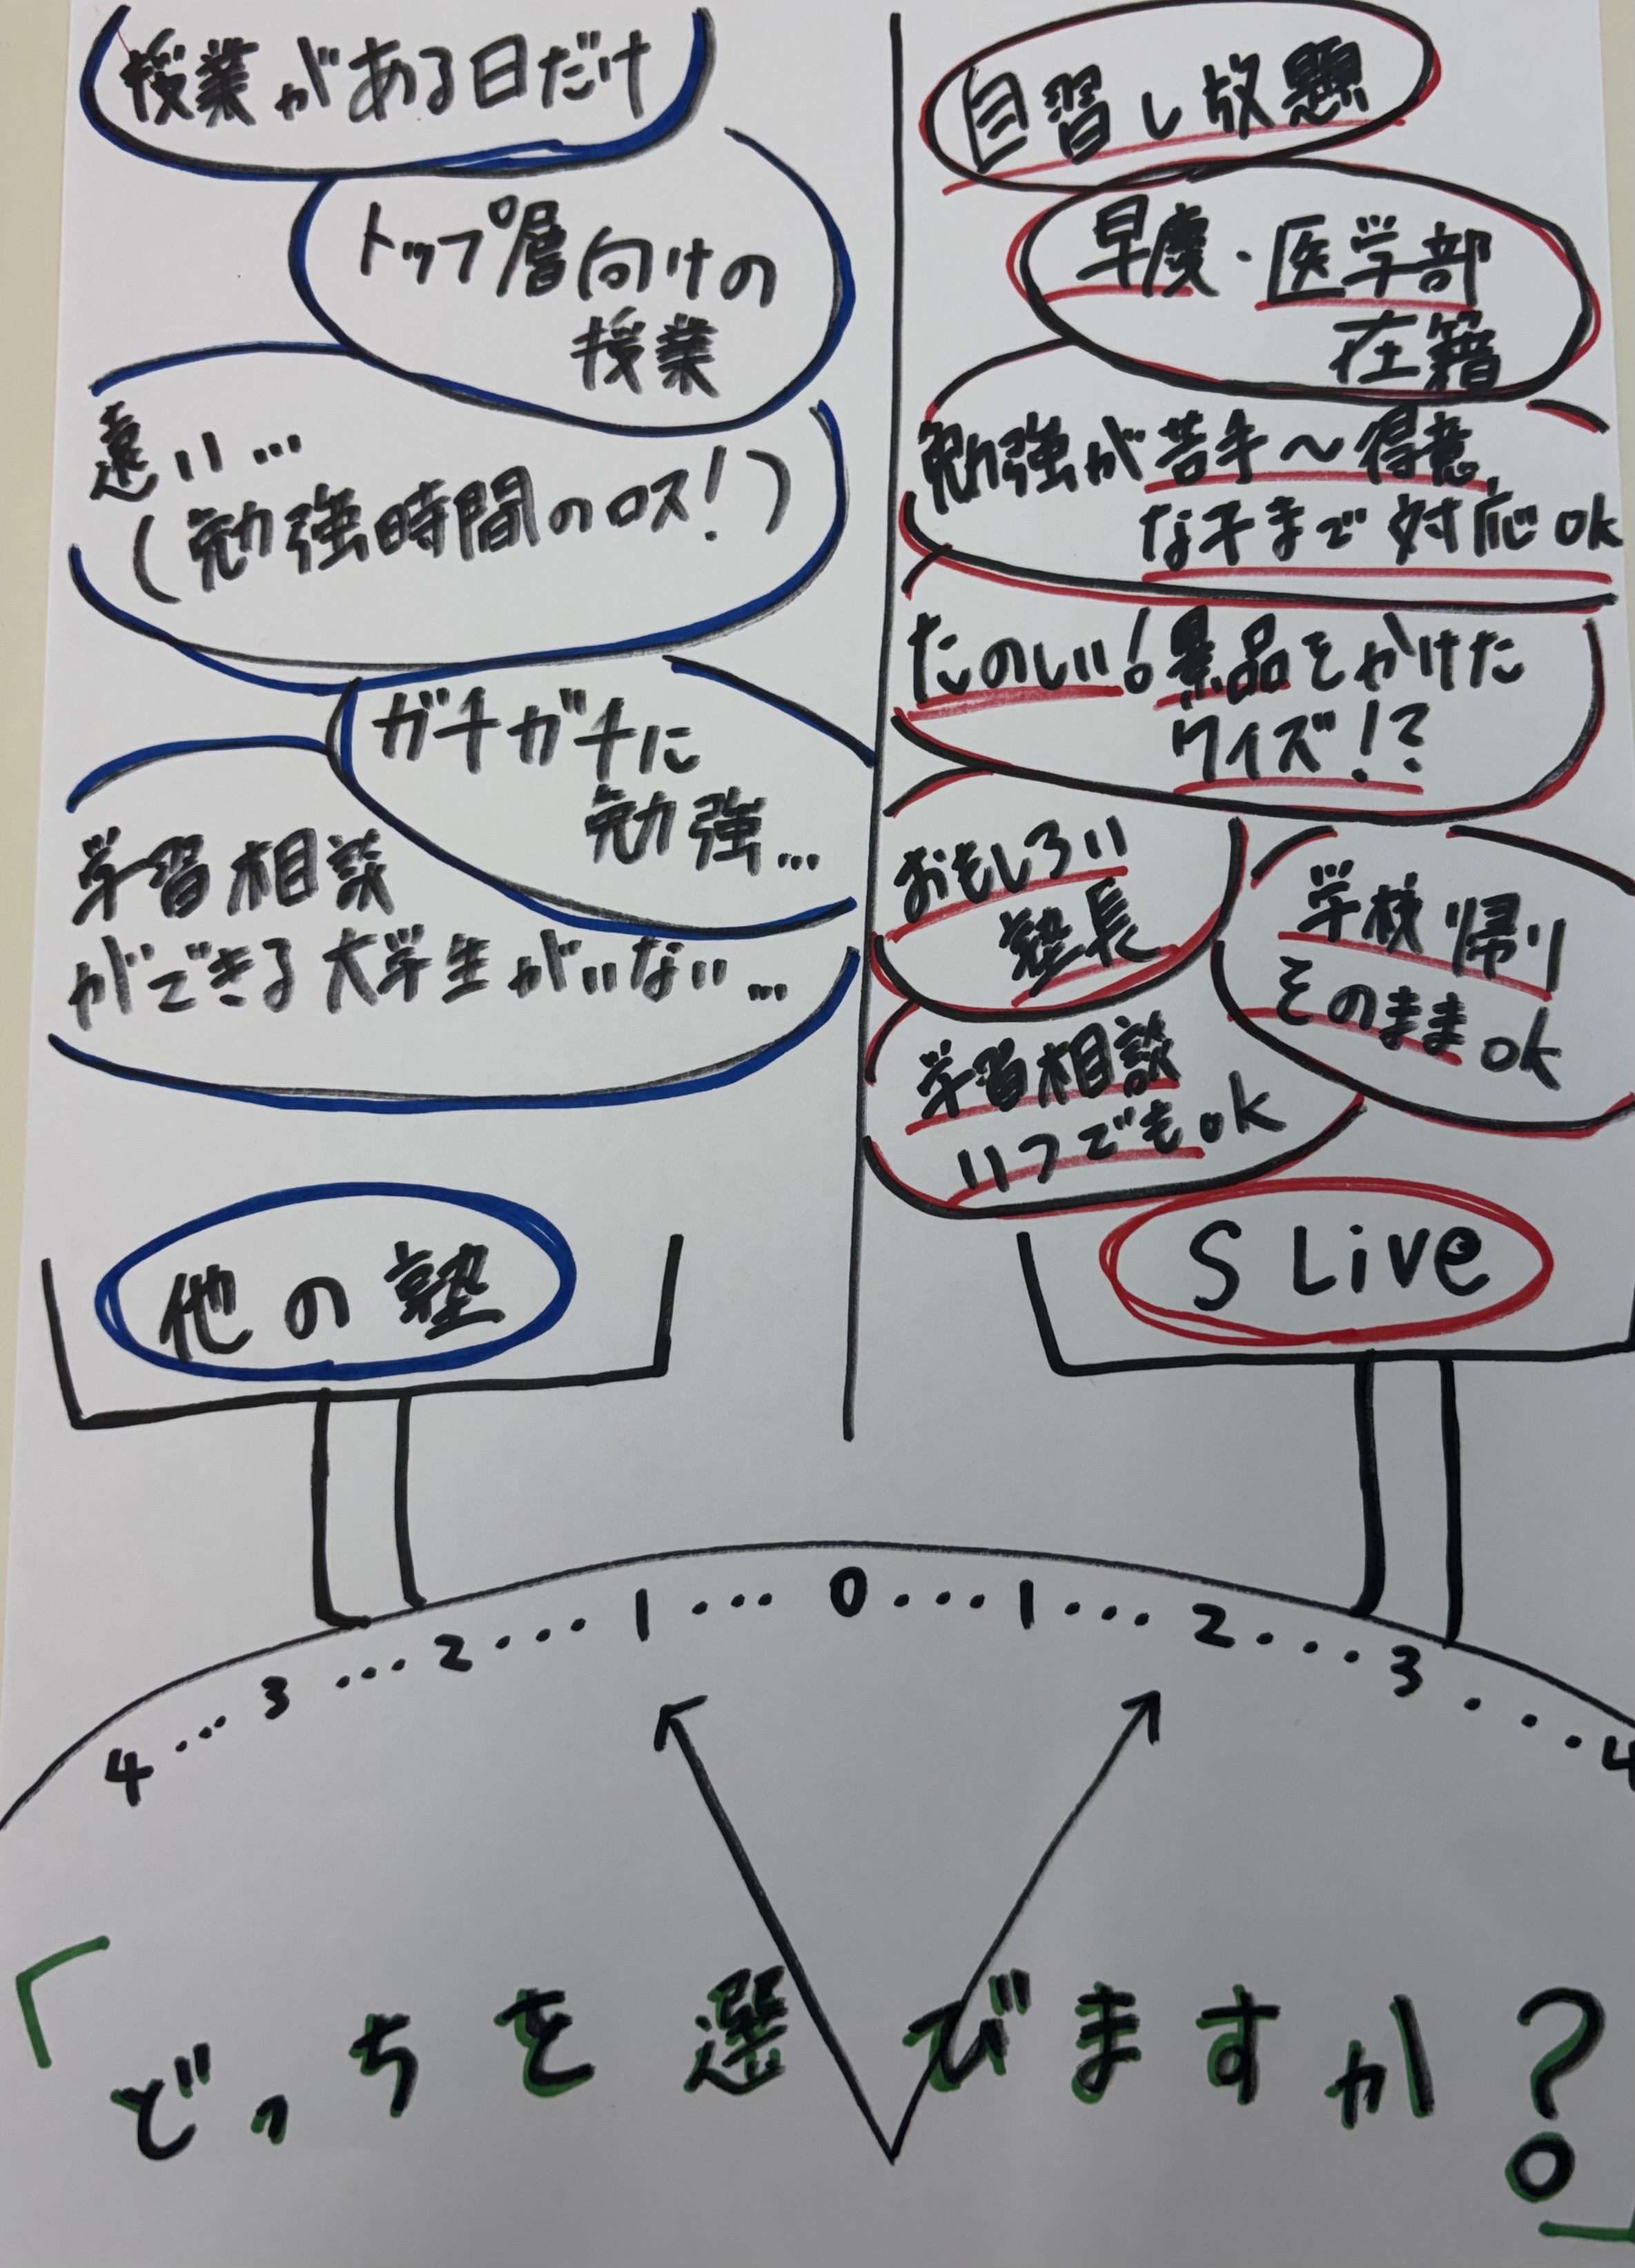 授業がある日だけ
トップ層向けの
授業
遠い…
(勉強時間のロス!)
ガチガチに
勉強…
学習相談
ができる大学生がいない…
他の塾
自習し放題
早慶・医学部
在籍
勉強が苦手～得意
な子まで対応ok
たのしい!景品をかけた
クイズ!?
おもしろい
塾長
学校帰り
そのままok
学習相談
いつでもok
S Live
4…3…2…1…0…1…2…3…4
「どっちを選びますか?」